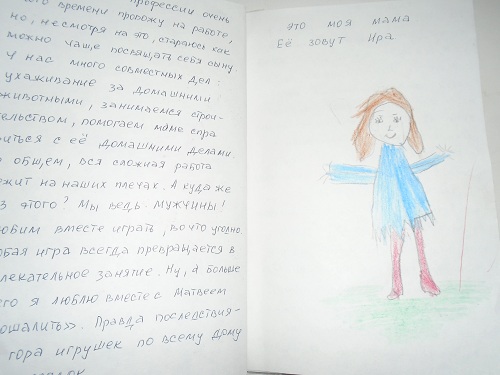 профессии очень
времени провожу на работе,
но, несмотря на это, стараюсь как
можно чаще посвящать себя сыну
У нас много совместных дел:
ухаживание за домашними
животными, занимаемся строи-
тельством, помогаем маме спра
виться с её домашними делами.
общем, вся сложная работа
лежит на наших плечах. А куда же
з этого? Мы ведь мужчины!
юбим вместе играть, во что угодно.
юбая игра всегда превращается в
влекательное занятие. Ну, а больше
его я люблю вместе с Матвеем
ошалить». Правда последствия-
гора игрушек по всему дому
это моя мама
Её зовут Ира